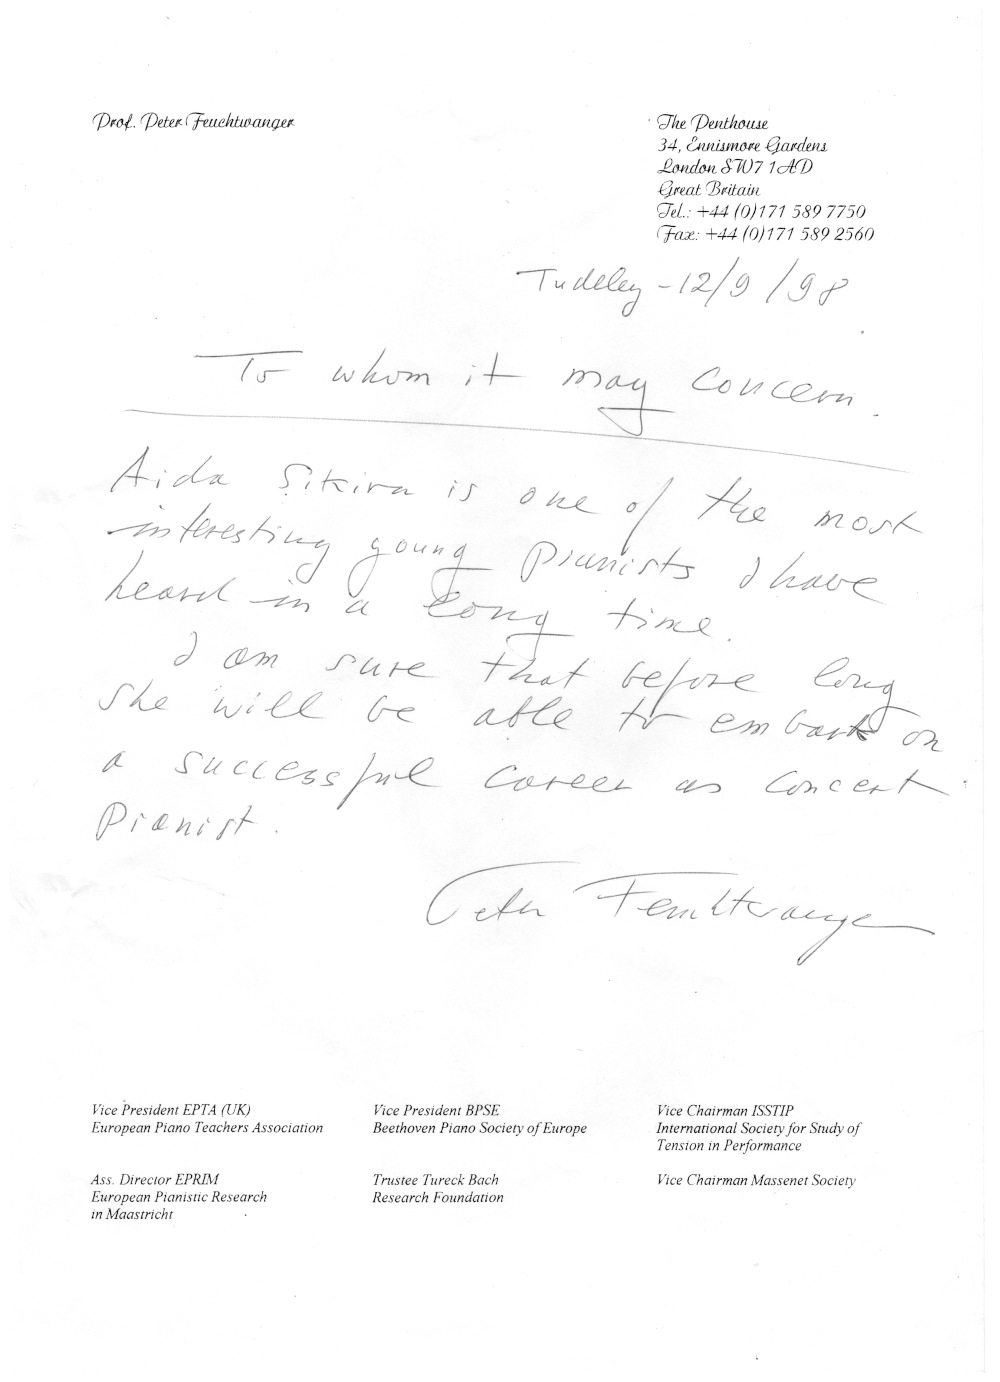 Prof. Peter Feuchtwanger
The Penthouse
34, Ennismore Gardens
London SW7 1AD
Great Britain
Tel.: +44 (0)171 589 7750
Fax: +44 (0)171 589 2560
Tudeley - 12/9/98
To whom it may concern.
Aida Sikira is one of the most
interesting young pianists I have
heard in a long time.
I am sure that before long
she will be able to embark on
a successful career as concert
pianist.
Peter Feuchtwanger
Vice President EPTA (UK)
European Piano Teachers Association
Vice President BPSE
Beethoven Piano Society of Europe
Vice Chairman ISSTIP
International Society for Study of
Tension in Performance
Ass. Director EPRIM
European Pianistic Research
in Maastricht
Trustee Tureck Bach
Research Foundation
Vice Chairman Massenet Society